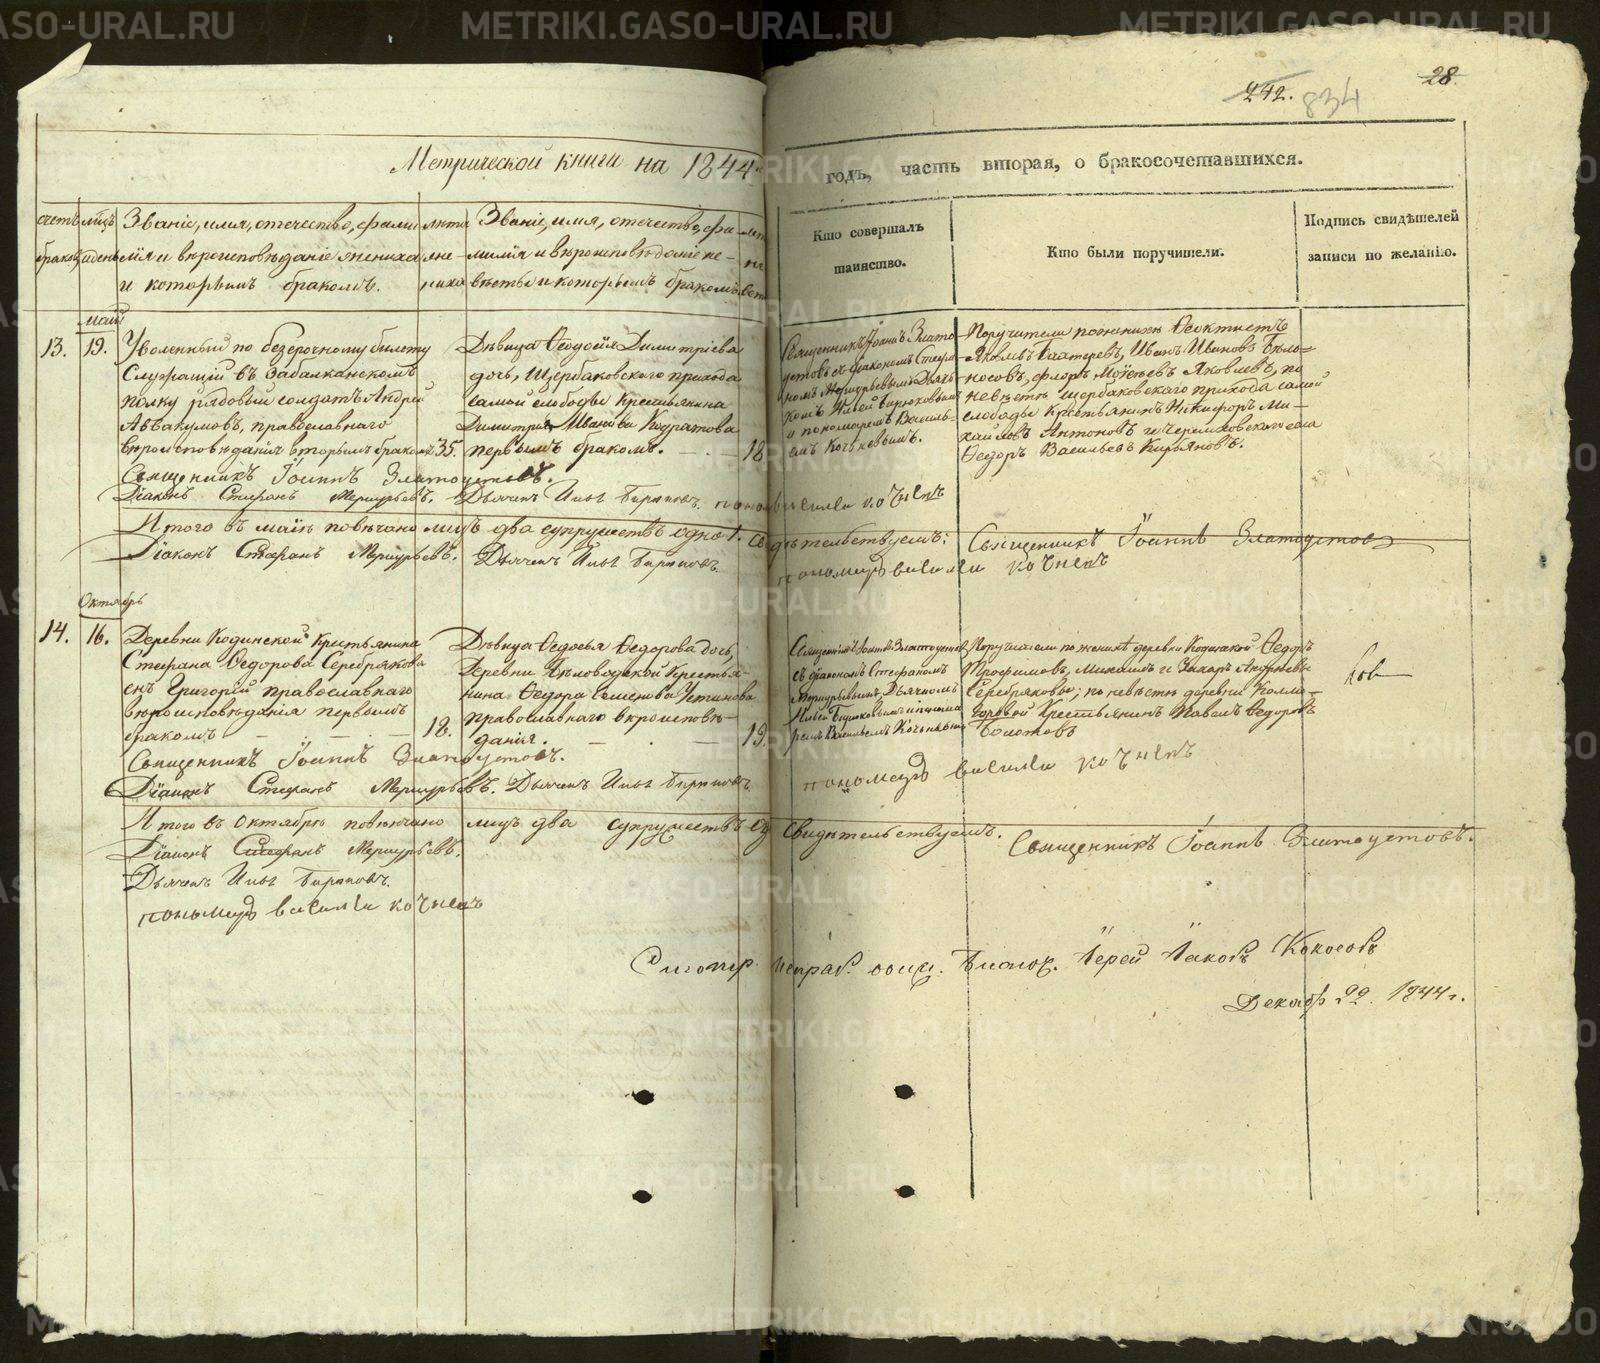 242. 834 28.
Метрической книги на 1844й годъ, часть вторая, о бракосочетавшихся.
счетъ браковъ
мѣсяцъ и день
Званіе, имя, отечество, фами-
лія и вѣроисповѣданіе жениха
и которымъ бракомъ.
лѣта
же-
ниха
Званіе, имя, отечество, фа-
милія и вѣроисповѣданіе не-
вѣсты и которымъ бракомъ
Кто совершалъ
таинство.
Кто были поручители.
Подпись свидѣтелей
записи по желанію.
май
13. 19.
Уволенный по безсрочному билету
служащій въ Забалканскомъ
полку рядовый солдатъ Андрей
Авъакумовъ, православнаго
вѣроисповѣданія вторымъ бракомъ 35.
Дѣвица Ѳеодосія Димитріева
дочь, Щербаковскаго прихода
самой слободы крестьянина
Димитрія Иванова Кодратова
первымъ бракомъ. 18
Священникъ Іоаннъ Злато-
устовъ съ діакономъ Стефа-
номъ Меркурьевымъ Дьяч-
комъ Ильей Бирюковымъ
и пономаремъ Василь-
емъ Кочневымъ.
Поручители по женихѣ Ѳеоктистъ
Иванъ Ивановъ Бѣло-
носовъ, Флоръ Моѵсеевъ Яковлевъ, по
невѣстѣ Щербаковскаго прихода самой
слободы крестьянинъ Никифоръ Ми-
хайловъ Антоновъ и Черемховскаго села
Ѳедоръ Васильевъ Кирьяновъ.
Священникъ Іоаннъ Златоустовъ.
Діаконъ Стефанъ Меркурьевъ. Дьячекъ Илья Бирюковъ. пономарь василеи кочневъ
Итого въ маіѣ повѣнчано лицъ два супружествъ одно 1. Свидѣтельствуемъ: Священникъ Іоаннъ Златоустовъ
Діаконъ Стефанъ Меркурьевъ. Дьячекъ Илья Бирюковъ. пономарь василеи кочневъ
Октябрь
14. 16.
Деревни Кодинской крестьянина
Стефана Ѳедорова Серебрякова
сынъ Григорій православнаго
вѣроисповѣданія первымъ
бракомъ 18.
Дѣвица Ѳедосья Ѳедорова дочь,
Деревни Бѣловодской крестья-
нина Ѳедора Семенова Устинова
православнаго вѣроисповѣ-
данія. 19.
Священникъ Іоаннъ Златоустовъ
съ діакономъ Стефаномъ
Меркурьевымъ, Дьячкомъ
Ильей Бирюковымъ и понома-
ремъ Васильемъ Кочневымъ
Поручители по женихѣ деревни Кодинской Ѳедоръ
Трофимовъ, Михаилъ и Захаръ Андреевы
Серебряковы; по невѣстѣ деревни Колма-
горовой крестьянинъ Павелъ Ѳедоровъ
Болотовъ
Священникъ Іоаннъ Златоустовъ.
пономарь василеи кочневъ
Діаконъ Стефанъ Меркурьевъ. Дьячекъ Илья Бирюковъ.
Итого въ Октябрѣ повѣнчано лицъ два супружествъ Свидѣтельствуемъ. Священникъ Іоаннъ Златоустовъ.
Діаконъ Стефанъ Меркурьевъ.
Дьячекъ Илья Бирюковъ.
пономарь василеи кочневъ
Іерей Іаковъ Кокосовъ
Декабр 22. 1844 г.
METRIKI.GASO-URAL.RU